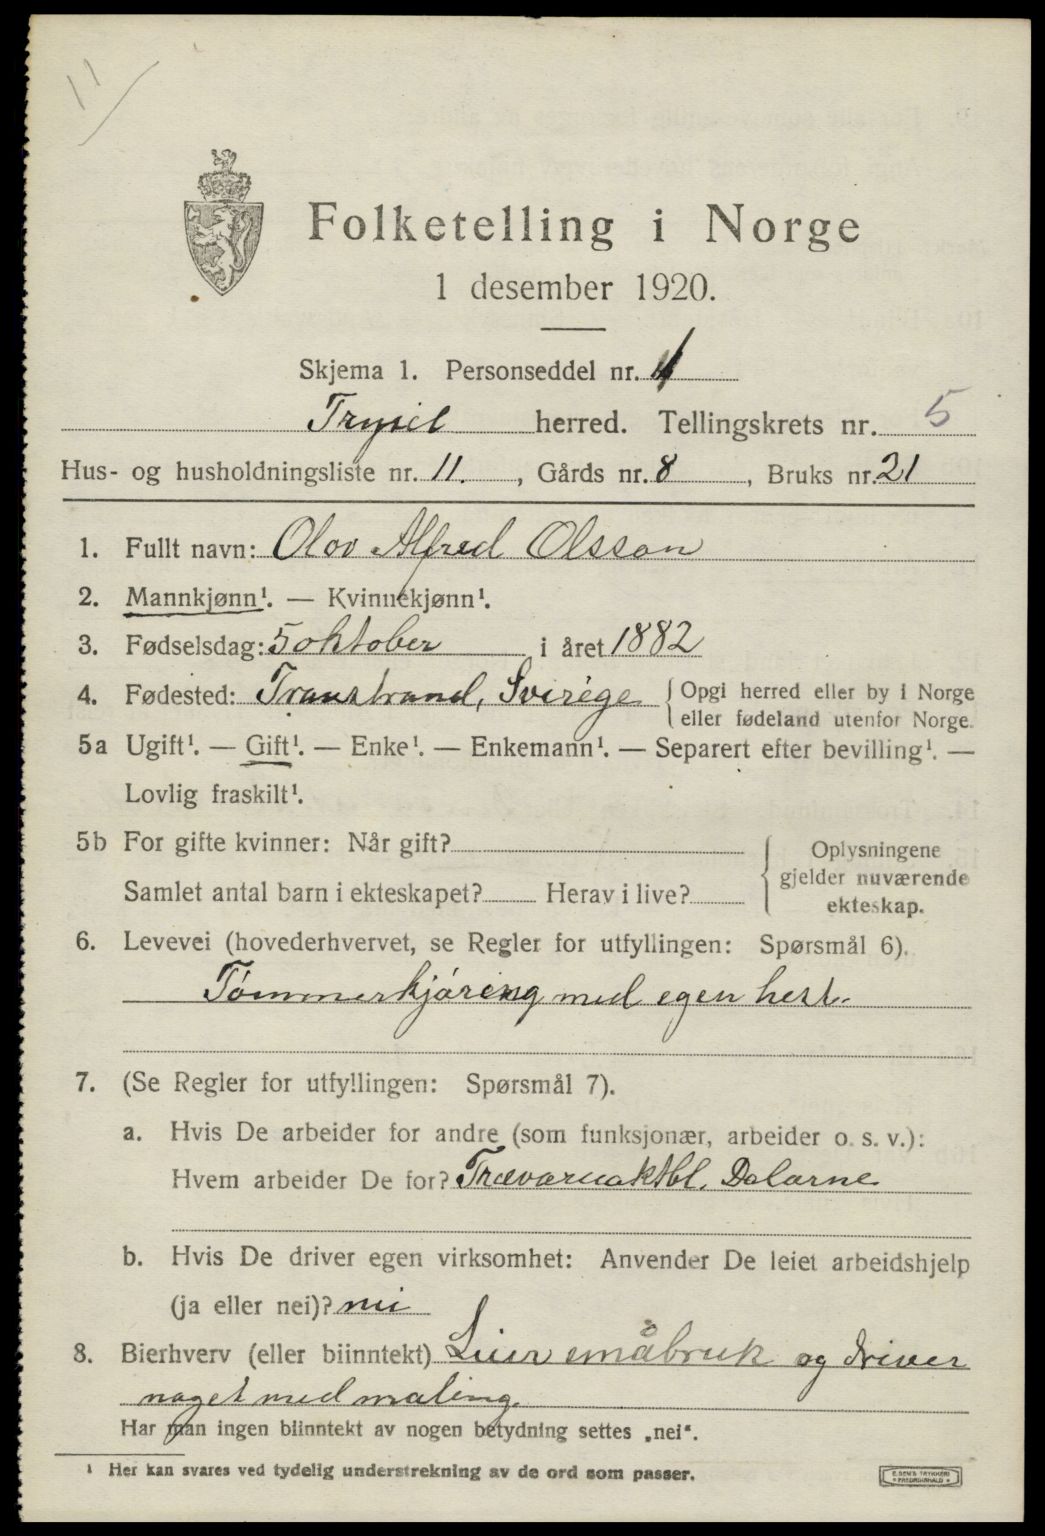 11
Folketelling i Norge
1 desember 1920.
Skjema 1. Personseddel nr. 1
Trysil herred. Tellingskrets nr. 5
Hus- og husholdningsliste nr. 11. , Gårds nr. 8 , Bruks nr. 21
1. Fullt navn: Olov Alfred Olsson
2. Mannkjønn¹. — Kvinnekjønn¹.
3. Fødselsdag: 5 oktober i året 1882
4. Fødested: Transtrand, Sverige { Opgi herred eller by i Norge
eller fødeland utenfor Norge.
5a Ugift¹. — Gift¹. — Enke¹. — Enkemann¹. — Separert efter bevilling¹. —
Lovlig fraskilt¹.
5b For gifte kvinner: Når gift?
Samlet antal barn i ekteskapet? Herav i live?
{ Oplysningene
gjelder nuværende
ekteskap.
6. Levevei (hovederhvervet, se Regler for utfyllingen: Spørsmål 6).
Tømmerkjøring med egen hest.
7. (Se Regler for utfyllingen: Spørsmål 7).
a. Hvis De arbeider for andre (som funksjonær, arbeider o. s. v.):
Hvem arbeider De for? Trævaruaktbl. Dalarne
b. Hvis De driver egen virksomhet: Anvender De leiet arbeidshjelp
(ja eller nei)? nei
8. Bierhverv (eller biinntekt) Leier småbruk og driver
noget med maling.
Har man ingen biinntekt av nogen betydning settes „nei“.
¹ Her kan svares ved tydelig understrekning av de ord som passer.